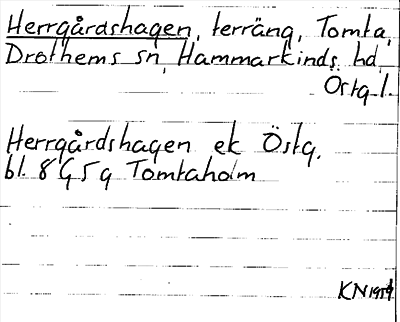 Herrgårdshagen, terräng, Tomta,
Drothems sn, Hammarkinds hd
Östg l.
Herrgårdshagen ek Östg.
bl. 8 G 5 g Tomtaholm
KN 1959